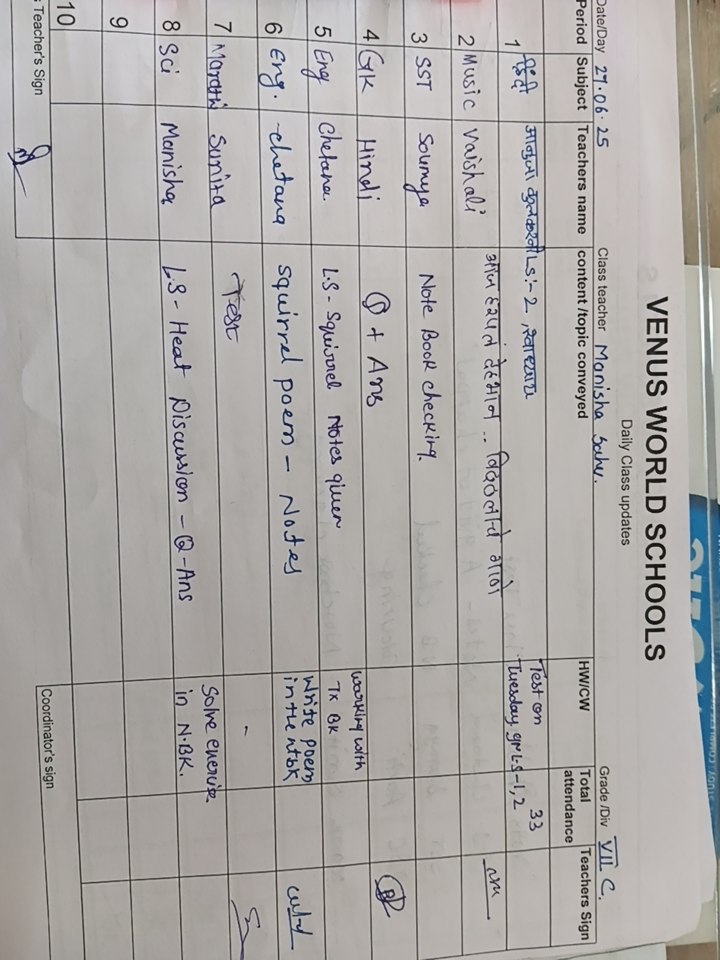 VENUS WORLD SCHOOLS
Daily Class updates
Date/Day 27.06.25 Class teacher Manisha Sahu. Grade /Div VII C.
Period Subject Teachers name content /topic conveyed HW/CW Total attendance Teachers Sign
1 हिंदी Ls:- 2, स्वाध्याय Test on Tuesday gr Ls-1,2 33
2 Music Vaishali
3 SST Soumya Note Book checking.
4 GK Hindi Q + Ans
5 Eng Chetana L.S - Squirrel Notes given working with Tx BK
6 Eng. chetana squirrel poem - Notes write poem in the ntbk
7 Marathi Sunita Test -
8 Sci Manisha L.S - Heat Discussion - Q-Ans Solve exercise in N.BK.
9
10
Teacher's Sign Coordinator's sign